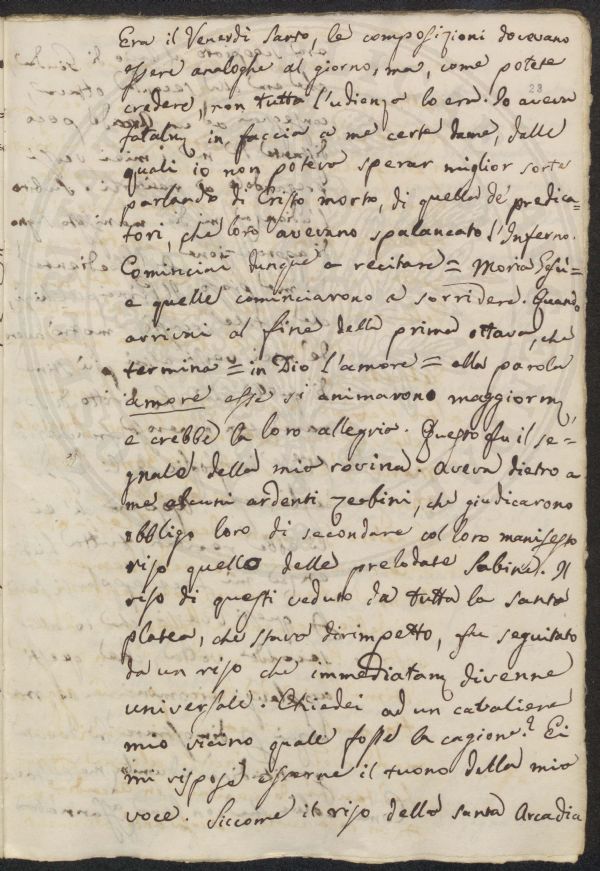 Era il Venerdì Santo, le composizioni dovevano
essere analoghe al giorno, ma, come potete
28
credere, non tutta l'udienza lo era. Io aveva
fatalm in faccia a me certe dame, dalle
quali io non poteva sperar miglior sorte
parlando di Cristo morto, di quella de' predica=
tori, che loro avevano spalancato l'Inferno.
Cominciai dunque a recitare = Moria Gesù =
e quelle cominciarono a sorridere. Quando
arrivai al fine della prima ottava, che
termina = in Dio l'amore = alla parola
amore esse si animarono maggiorm,
e crebbe la loro allegria. Questo fu il se=
gnale della mia rovina. Aveva dietro a
me alcuni ardenti zerbini, che giudicarono
obbligo loro di secondare col loro manifesto
riso quello delle prelodate Sabine. Il
riso di questi veduto da tutta la santa
platea, che stava dirimpetto, fu seguitato
da un riso che immediatam divenne
universale. Chiedei ad un cavaliere
mio vicino quale fosse la cagione? Ei
mi rispose esserne il tuono della mia
voce. Siccome il riso della santa Arcadia